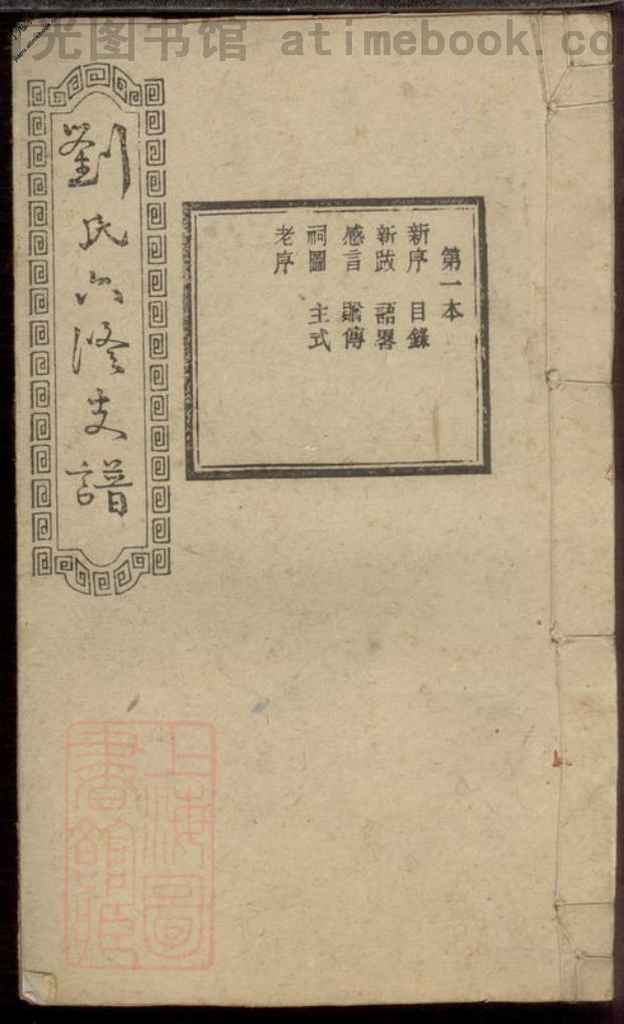 光图书馆 atimebook.co
劉氏六修支譜
第一本
新序 目錄
新跋 語畧
感言 贈傳
祠圖 主式
老序
上海圖
書館藏